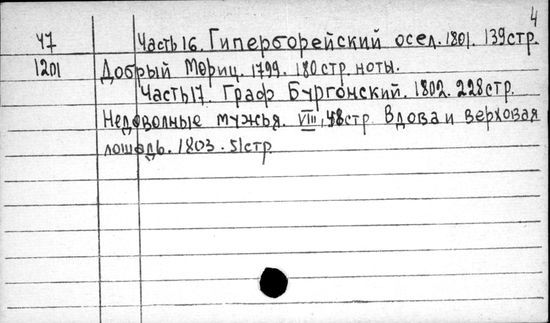 4
47 Часть 16. Гиперборейский осел. 1801. 139стр.
1201 Добрый Мориц. 1799. 180 стр. ноты.
Часть 17. Граф Бургонский. 1802. 228стр.
Недовольные мужья. VIII, 48стр. Вдова и верховая
лошадь. 1803. 51стр.